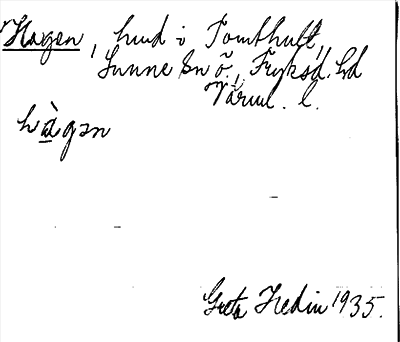 Hagen, hmd i Tomthult,
Sunne sn ö., Fryksd. hd
Värml. l.
hàgən
Greta Hedin 1935.